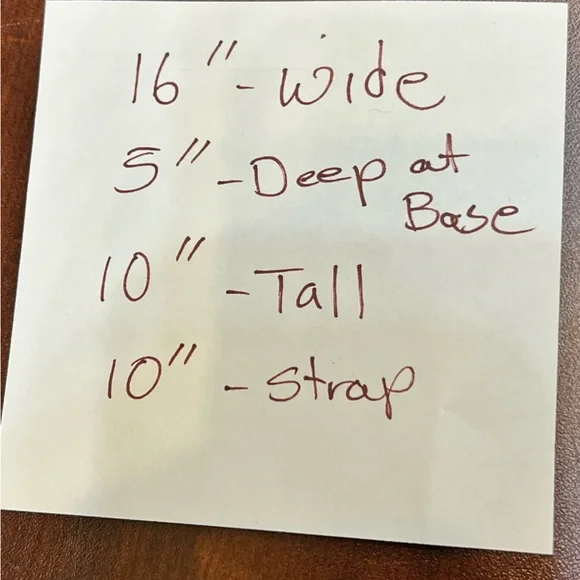 16" - Wide
5" - Deep at
Base
10" - Tall
10" - Strap